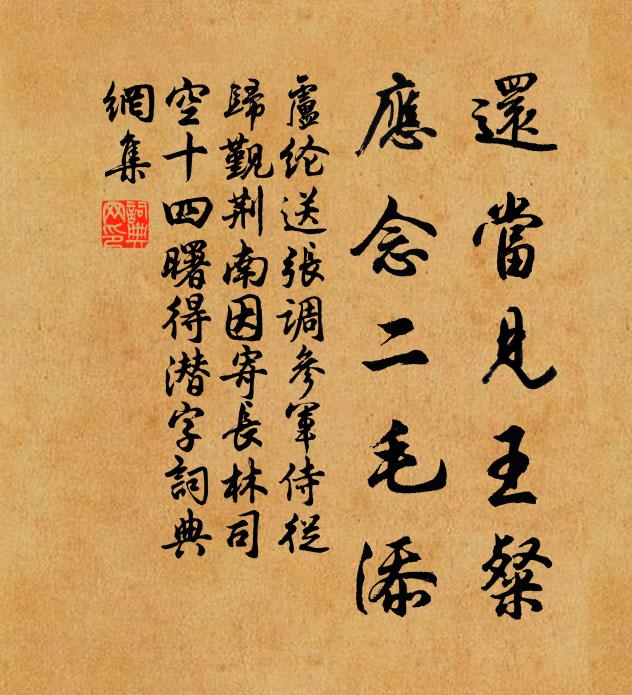 還當見王粲
應念二毛添
盧纶送張调參軍侍從
歸覲荆南因寄長林司
空十四曙得潜字詞典
網集
詞典网印